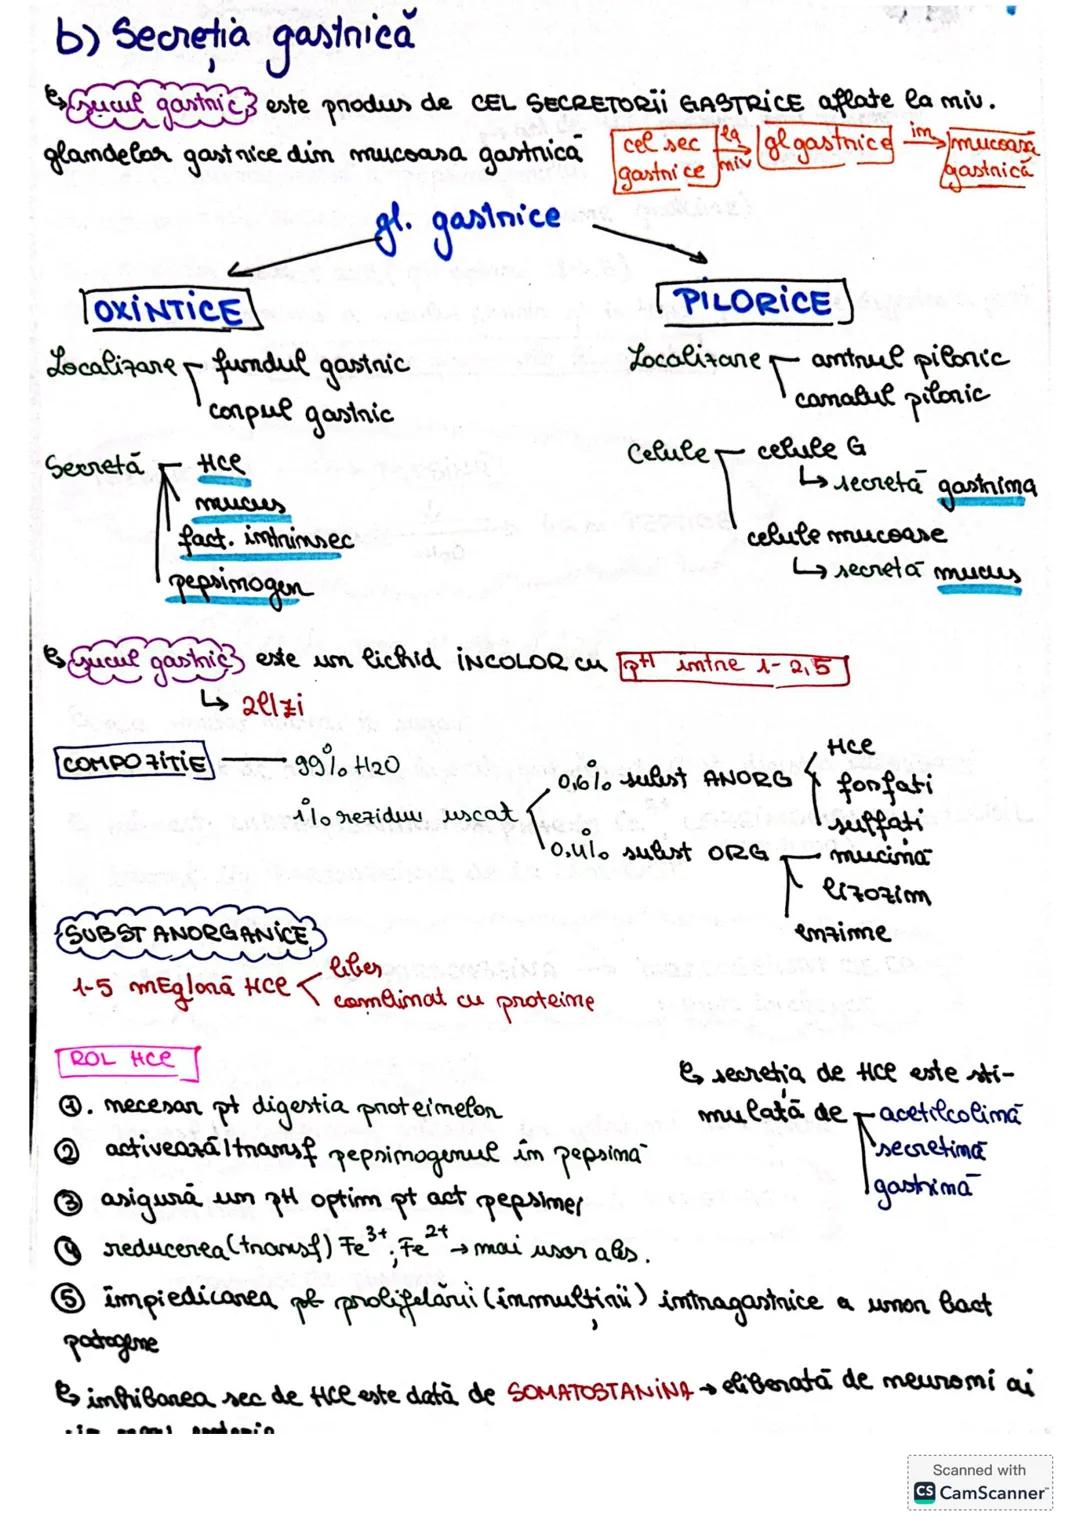 b) Secreția gastrică
sucul gastric este produs de CEL SECRETORII GASTRICE aflate la niv.
glandelor gastrice din mucoasa gastrică
cel sec gastrice la niv gl gastrice în mucoasa gastrică
gl. gastrice
OXINTICE
PILORICE
Localizare fundul gastric
corpul gastric
Localizare antrul piloric
canalul piloric
Secretă HCl
mucus
fact. intrinsec
pepsinogen
Celule celule G
secretă gastrina
celule mucoase
secretă mucus
sucul gastric este un lichid INCOLOR cu pH intre 1-2,5
2l/zi
COMPOZITIE 99% H2O
1% reziduu uscat
0,6% subst ANORG
HCl
fosfati
sulfati
0,4% subst ORG
mucină
lizozim
enzime
SUBST ANORGANICE
1-5 mEq/oră HCl
liber
combinat cu proteine
ROL HCl
①. necesar pt digestia proteinelor
② activează/transf pepsinogenul în pepsină
③ asigură un pH optim pt act pepsinei
④ reducerea (transf) Fe3+, Fe2+ → mai usor abs.
⑤ împiedicarea proliferării (înmulțirii) intragastrice a unor bact
patogene
secreția de HCl este sti-
mulată de acetilcolină
secretină
gastrină
inhibarea sec de HCl este dată de SOMATOSTANINA → eliberată de neuroni ai
Scanned with
CS CamScanner